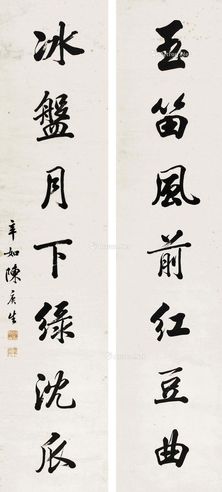 玉笛風前紅豆曲
冰盤月下綠沈瓜
辛如陳庚生